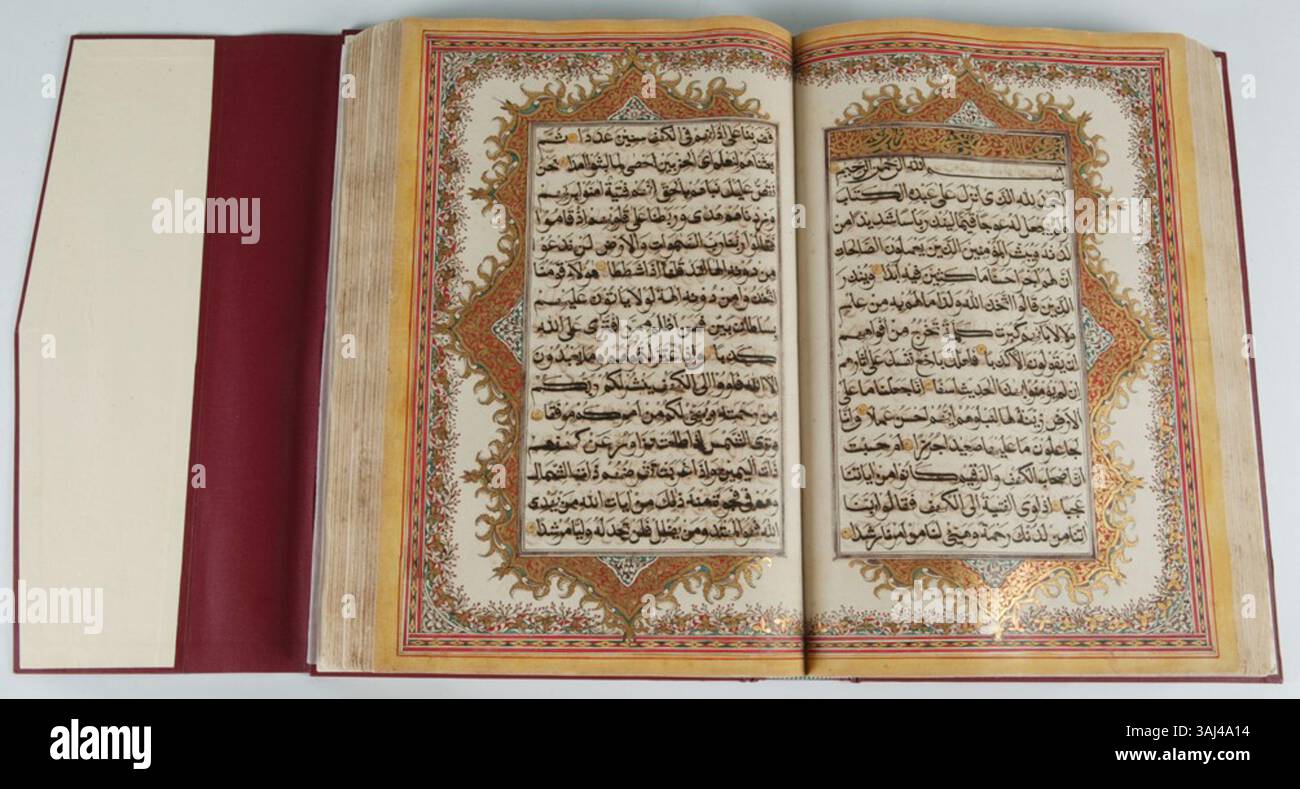 بسم الله الرحمن الرحيم
الحمد لله الذي انزل على عبده الكتاب
ولم يجعل له عوجا قيما لينذر باسا شديدا من
لدنه ويبشر المؤمنين الذين يعملون الصالحات
ان لهم اجرا حسنا ماكثين فيه ابدا وينذر
الذين قالوا اتخذ الله ولدا ما لهم به من علم
ولا لابائهم كبرت كلمة تخرج من افواههم
ان يقولون الا كذبا فلعلك باخع نفسك على اثارهم
ان لم يؤمنوا بهذا الحديث اسفا انا جعلنا ما على
الارض زينة لها لنبلوهم ايهم احسن عملا وانا
لجاعلون ما عليها صعيدا جرزا ام حسبت
ان اصحاب الكهف والرقيم كانوا من اياتنا
عجبا اذ اوى الفتية الى الكهف فقالوا ربنا
اتنا من لدنك رحمة وهيئ لنا من امرنا رشدا
فضربنا على اذانهم في الكهف سنين عددا ثم
بعثناهم لنعلم اي الحزبين احصى لما لبثوا امدا نحن
نقص عليك نباهم بالحق انهم فتية امنوا بربهم
وزدناهم هدى وربطنا على قلوبهم اذ قاموا
فقالوا ربنا رب السموات والارض لن ندعوا
من دونه الها لقد قلنا اذا شططا هؤلاء قومنا
اتخذوا من دونه الهة لولا ياتون عليهم
بسلطان بين فمن اظلم ممن افترى على الله
كذبا واذ اعتزلتموهم وما يعبدون
الا الله فاووا الى الكهف ينشر لكم ربكم
من رحمته ويهيئ لكم من امركم مرفقا
وترى الشمس اذا طلعت تزاور عن كهفهم
ذات اليمين واذا غربت تقرضهم ذات الشمال
وهم في فجوة منه ذلك من ايات الله من يهدى
الله فهو المهتد ومن يضلل فلن تجد له وليا مرشدا
alamy
Image ID: 3AJ4A14
www.alamy.com